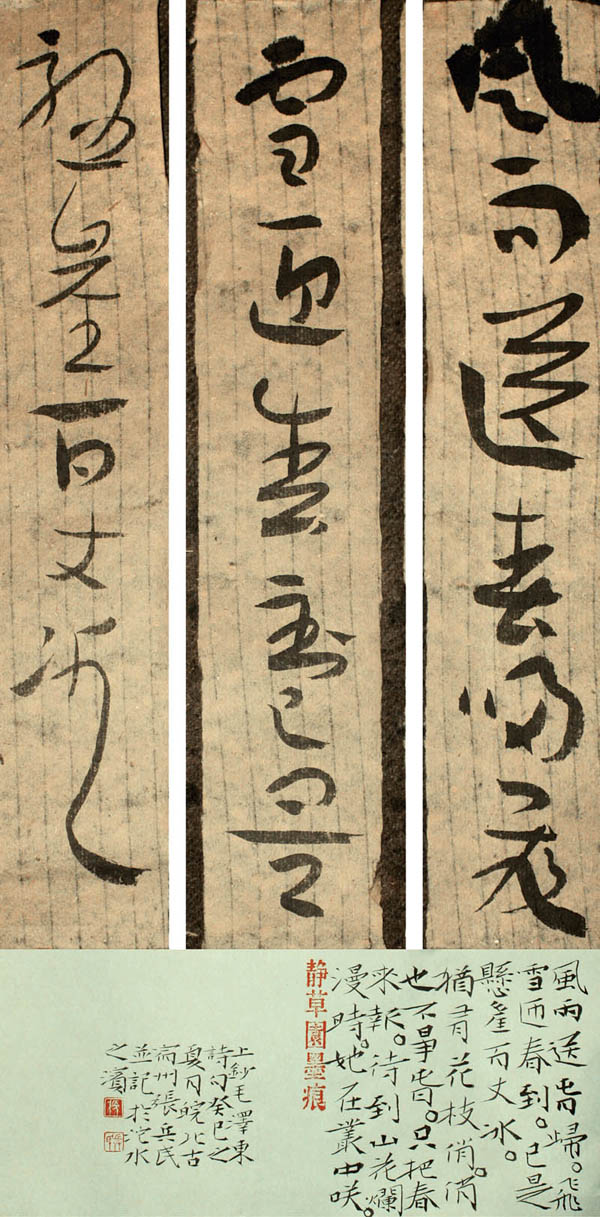 風雨送春歸飛
雪迎春到已是
懸崖百丈冰
風雨送旾歸。飛
雪迎春到。已是
懸崖百丈冰。
猶有花枝俏。俏
也不爭旾。只把春
來報。待到山花爛
漫時。她在叢中咲。
静草園墨痕
上鈔毛澤東
詩句癸巳之
夏月皖北古
宿州張兵民
並記於沱水
之濱